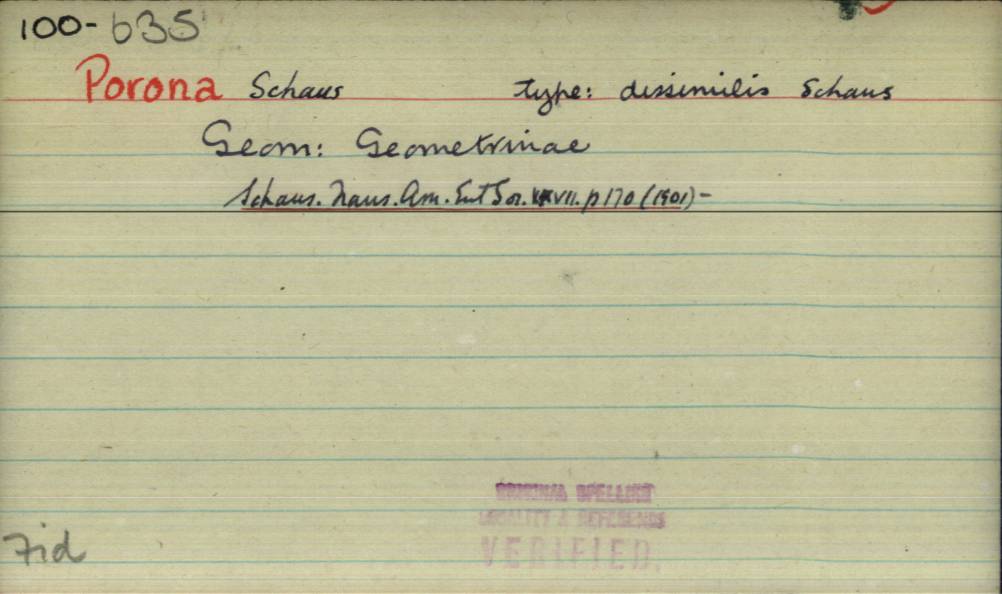 100-635
Porona Schaus type: dissimilis Schaus
Geom: Geometrinae
Schaus. Trans. Am. Ent Soc. XXVII. p 170 (1901) -
ORIGINAL SPELLING
LOCALITY & REFERENCE
VERIFIED.
Fid